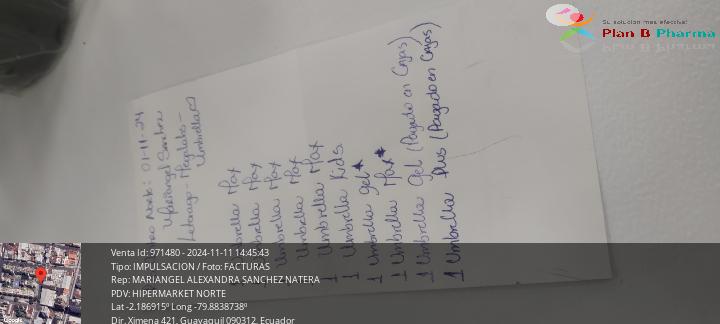 Su solución mas efectiva!
Plan B Pharma
Norte: 01-11-24
Mariangel Sanchez
Leterago - Megalabs -
Umbrella
Umbrella Max
Umbrella Max
Umbrella Max
Umbrella Max
1 Umbrella Max
1 Umbrella Kids
1 Umbrella gel*
1 Umbrella Max*
1 Umbrella Gel (Pagado en Cajas)
1 Umbrella Plus (Pagado en Cajas)
Venta Id: 971480 - 2024-11-11 14:45:43
Tipo: IMPULSACION / Foto: FACTURAS
Rep: MARIANGEL ALEXANDRA SANCHEZ NATERA
PDV: HIPERMARKET NORTE
Lat -2.186915º Long -79.8838738º
Dir. Ximena 421, Guayaquil 090312, Ecuador
Google